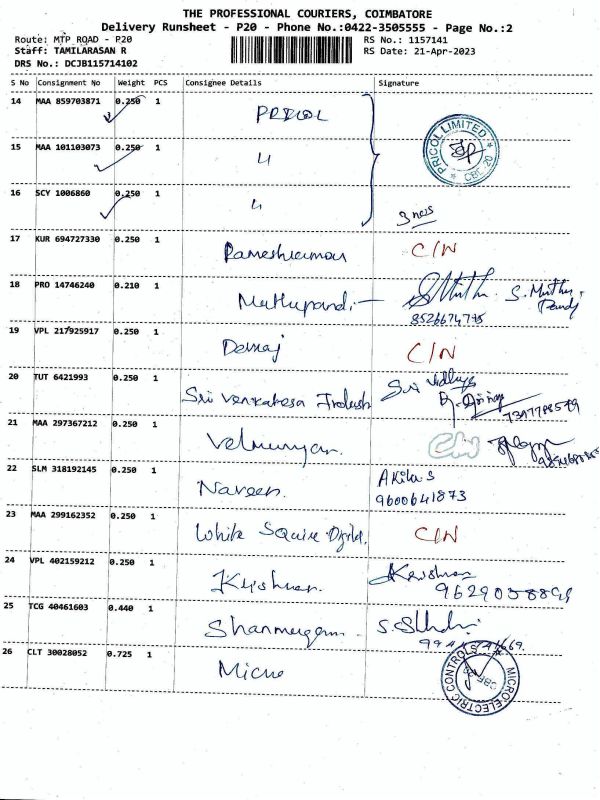 THE PROFESSIONAL COURIERS, COIMBATORE
Delivery Runsheet - P20 - Phone No.:0422-3505555 - Page No.:2
Route: MTP ROAD - P20 RS No.: 1157141
Staff: TAMILARASAN R RS Date: 21-Apr-2023
DRS No.: DCJB115714102
S No Consignment No Weight PCS Consignee Details Signature
14 MAA 859703871 0.250 1 PRICOL
PRICOL LIMITED CBE 20
15 MAA 101103073 0.250 1 4
16 SCY 1006860 0.250 1 4
3 nos
17 KUR 694727330 0.250 1 Rameshkumar C/N
18 PRO 14746240 0.210 1 Muthupandi S. Muthu
Pandi
8526674775
19 VPL 217925917 0.250 1 C/N
20 TUT 6421993 0.250 1 Sri Venkatesa Sri
21 MAA 297367212 0.250 1 Velmurugan C/N
22 SLM 318192145 0.250 1 Naveen. Akila S
9600641873
23 MAA 299162352 0.250 1 White Squire C/N
24 VPL 402159212 0.250 1 Krishnan. Krishnan
25 TCG 40461603 0.440 1 Shanmugam
26 CLT 30028052 0.725 1 Micro
MICRO ELECTRIC CONTROLS